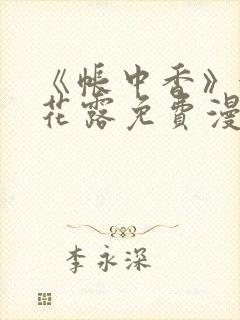 《帐中香》
花露免费漫
李永深